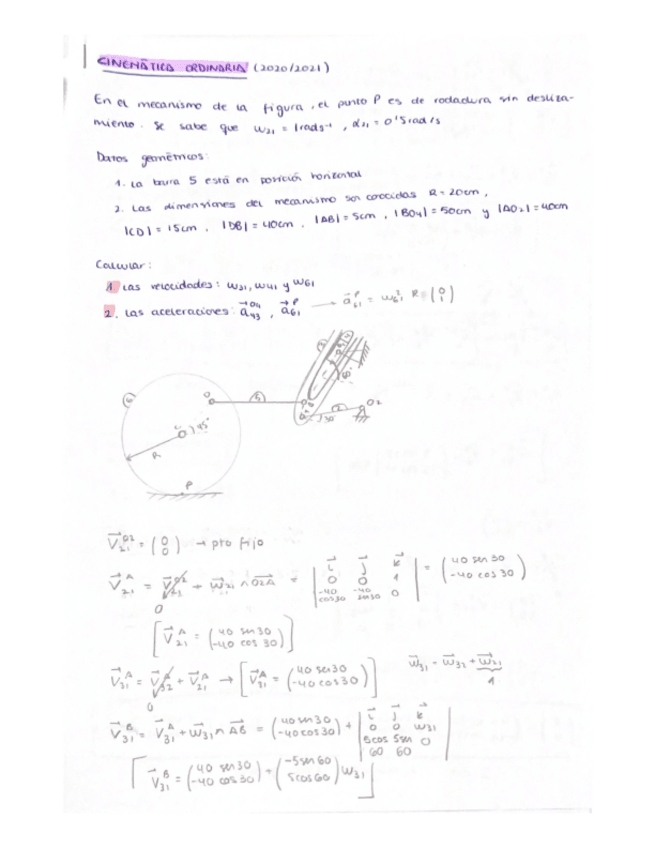 CINEMÁTICA ORDINARIA (2020/2021)
En el mecanismo de la figura, el punto P es de rodadura sin desliza-
miento. Se sabe que ω21 = 1rads⁻¹, α21 = 0'5rad/s
Datos geométricos:
1. La barra 5 está en posición horizontal
2. Las dimensiones del mecanismo son conocidas R = 20cm,
|CD| = 15cm, |DB| = 40cm, |AB| = 5cm, |BO4| = 50cm y |AO2| = 40cm
Calcular:
1 Las velocidades: ω31, ω41 y ω61
2. Las aceleraciones: a⃗43^O4, a⃗61^P → a⃗61^P = ω61² R = (0 1)
6
D
5
2
O2
30°
C
45°
R
P
60°
V⃗21^O2 = (0 0) → pto fijo
V⃗21^A = V⃗21^O2 + ω⃗21 ∧ O2A = | i⃗ j⃗ k⃗ 0 0 1 -40 cos30 -40 sen30 0 | = (40 sen 30 -40 cos 30)
0
[V⃗21^A = (40 sen 30 -40 cos 30)]
V⃗31^A = V⃗32^A + V⃗21^A → [V⃗31^A = (40 sen30 -40 cos 30)] ω⃗31 = ω⃗32 + ω⃗21
0 1
V⃗31^B = V⃗31^A + ω⃗31 ∧ AB = (40 sen 30 -40 cos 30) + | i⃗ j⃗ k⃗ 0 0 ω31 5cos 60 5sen 60 0 |
[V⃗31^B = (40 sen 30 -40 cos 30) + (-5sen 60 5cos60) ω31]